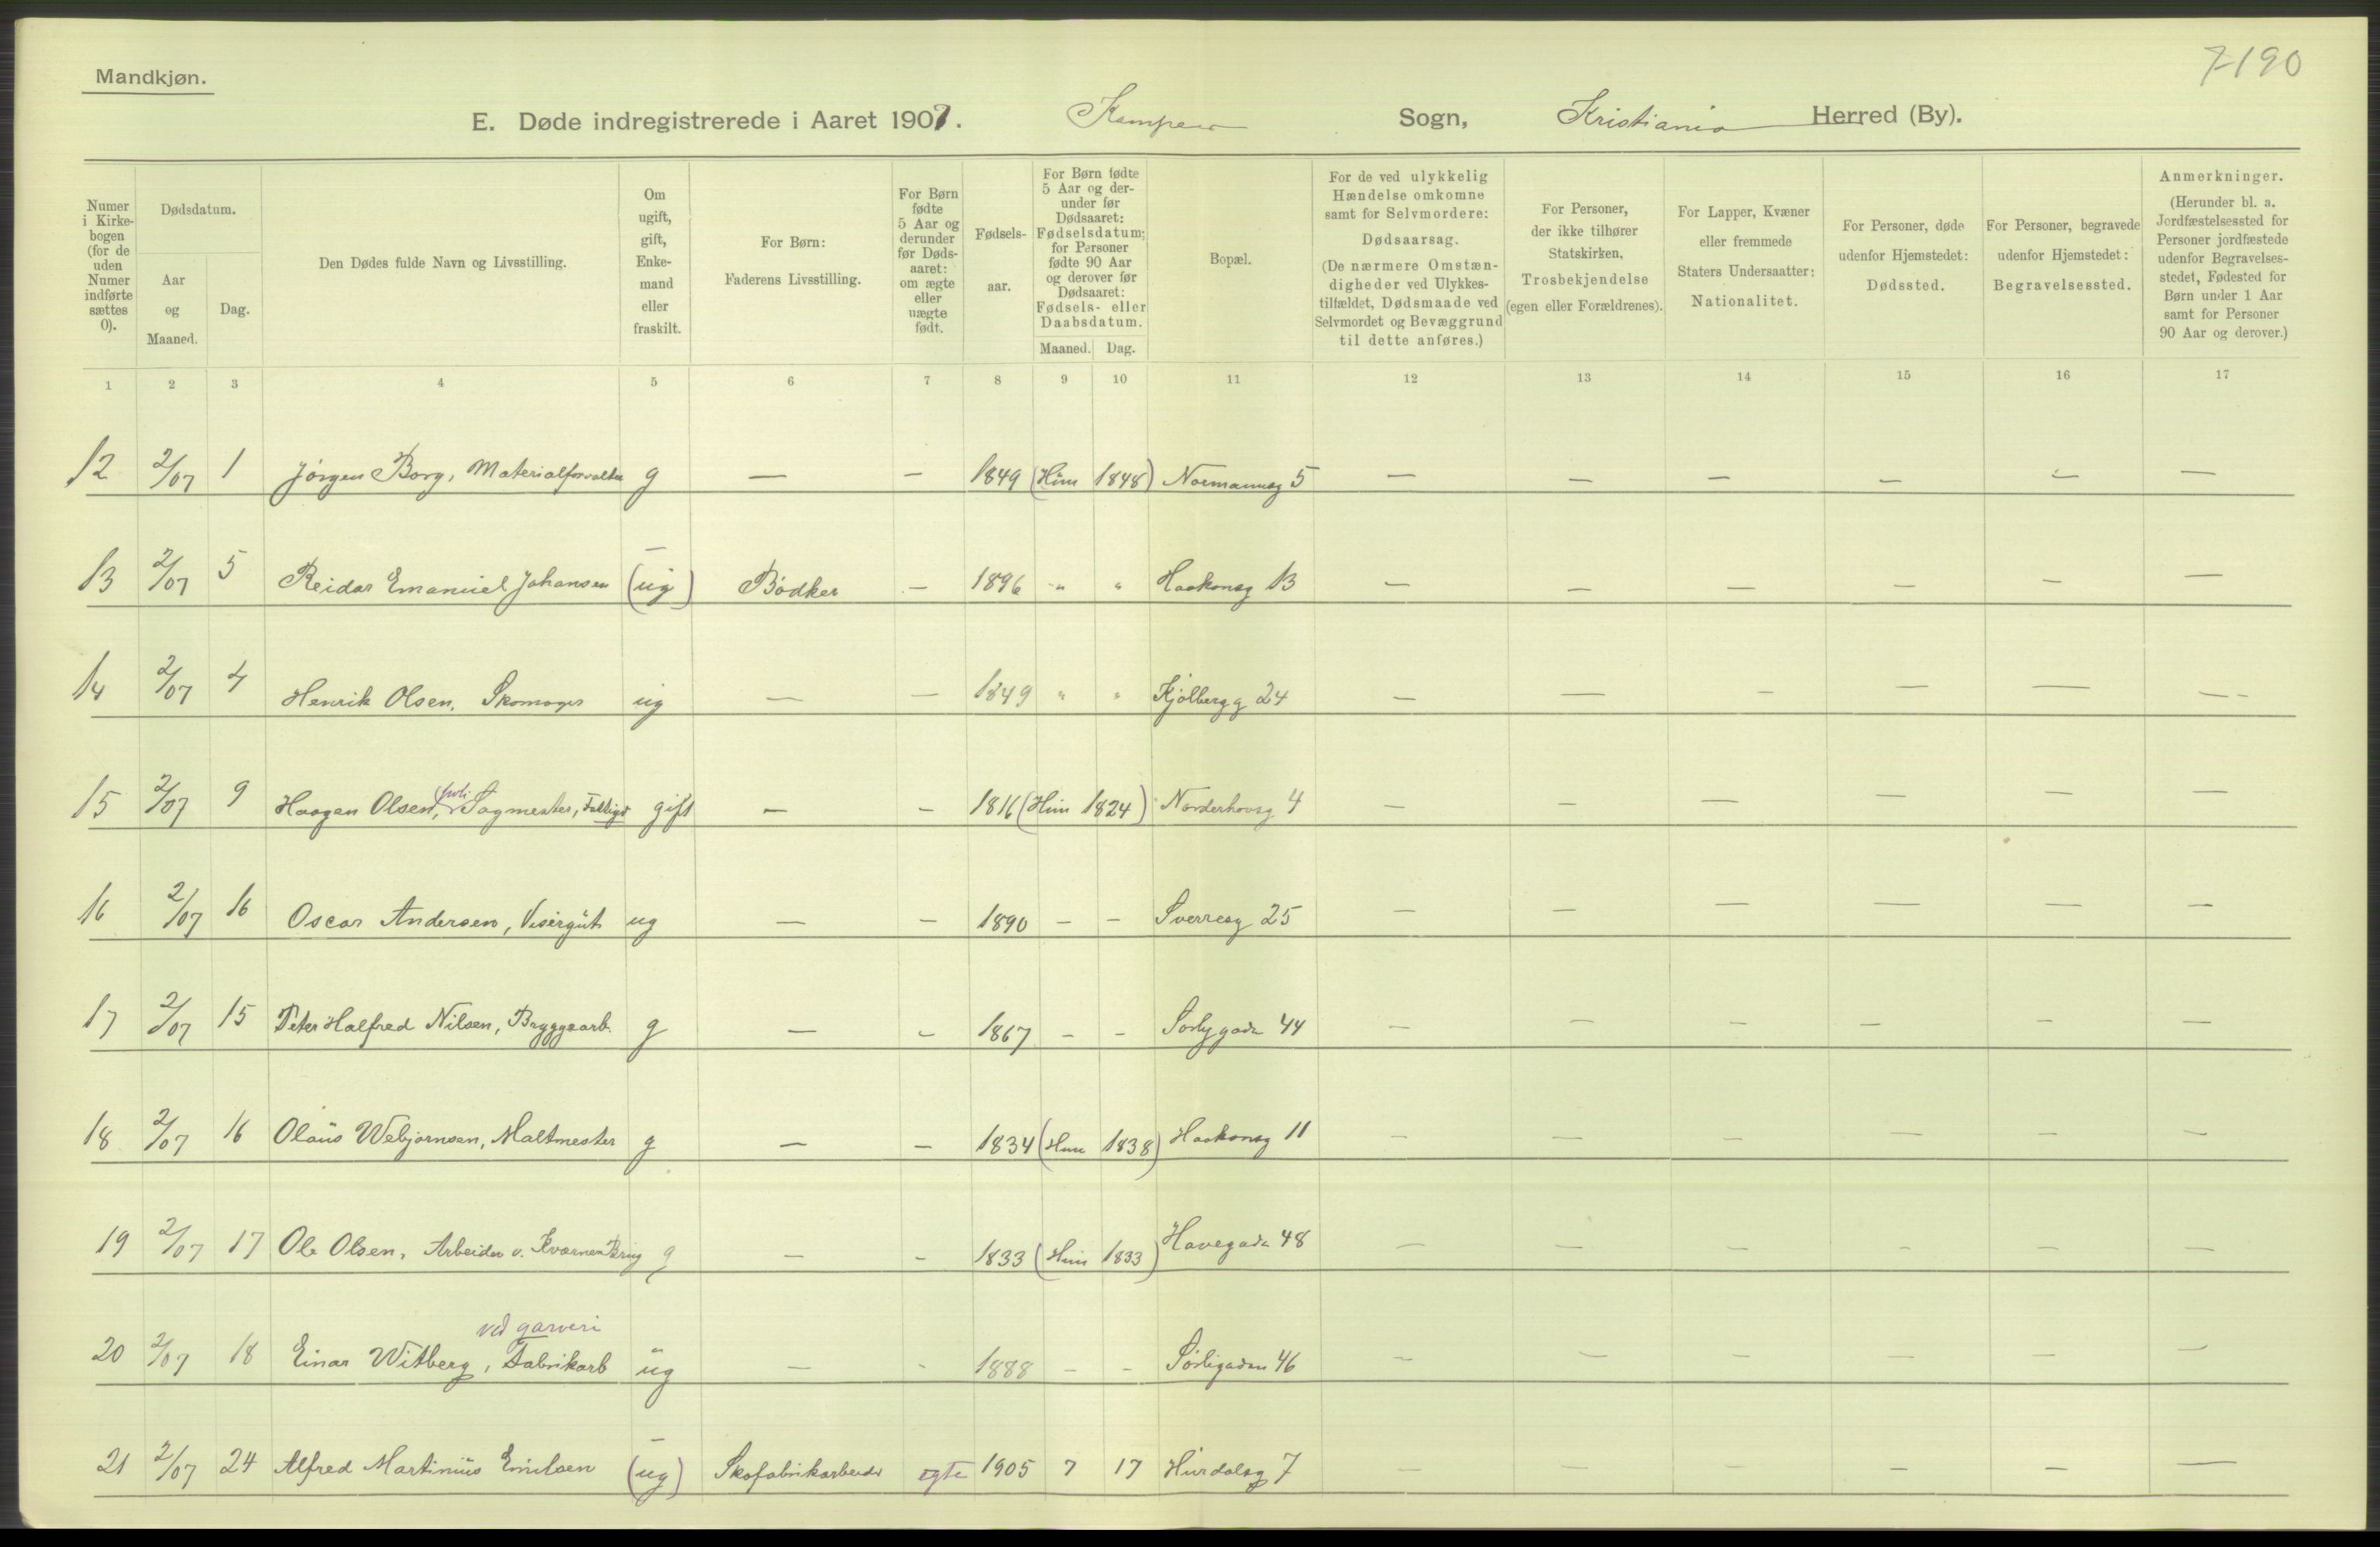 7-190
Mandkjøn.
E. Døde indregistrerede i Aaret 1907. Kampen Sogn, Kristiania Herred (By).
Numer i Kirkebogen (for de uden Numer indførte sættes 0).
Dødsdatum.
Aar og Maaned.
Dag.
Den Dødes fulde Navn og Livsstilling.
Om ugift, gift, Enkemand eller fraskilt.
For Børn: Faderens Livsstilling.
For Børn fødte 5 Aar og derunder før Dødsaaret: om ægte eller uægte født.
Fødselsaar.
For Børn fødte 5 Aar og derunder før Dødsaaret: Fødselsdatum; for Personer fødte 90 Aar og derover før Dødsaaret: Fødsels- eller Daabsdatum.
Maaned. Dag.
Bopæl.
For de ved ulykkelig Hændelse omkomne samt for Selvmordere: Dødsaarsag. (De nærmere Omstændigheder ved Ulykkestilfældet, Dødsmaade ved Selvmordet og Bevæggrund til dette anføres.)
For Personer, der ikke tilhører Statskirken, Trosbekjendelse (egen eller Forældrenes).
For Lapper, Kvæner eller fremmede Staters Undersaatter: Nationalitet.
For Personer, døde udenfor Hjemstedet: Dødssted.
For Personer, begravede udenfor Hjemstedet: Begravelsessted.
Anmerkninger. (Herunder bl. a. Jordfæstelsessted for Personer jordfæstede udenfor Begravelsesstedet, Fødested for Børn under 1 Aar samt for Personer 90 Aar og derover.)
1 2 3 4 5 6 7 8 9 10 11 12 13 14 15 16 17
12 2/07 1 Jørgen Borg, Materialforvalter g — — 1849 (Hun 1848) Normannsg 5 — — — — — —
13 2/07 5 Reidar Emanuel Johansen (ug) Bødker — 1896 " " Haakonsg 13 — — — — — —
14 2/07 4 Henrik Olsen, Skomager ug — — 1849 " " Kjølbergg 24 — — — — — —
15 2/07 9 Haagen Olsen, Sagmester, Fattigd gift — — 1816 (Hun 1824) Norderhovsg 4 — — — — — —
16 2/07 16 Oscar Andersen, Visergut ug — — 1890 — — Sverresg 25 — — — — — —
17 2/07 15 Peter Halfred Nilsen, Bryggearb. g — — 1867 — — Sørlygada 44 — — — — — —
18 2/07 16 Olaus Webjørnsen, Maltmester g — — 1834 (Hun 1838) Haakonsg 11 — — — — — —
19 2/07 17 Ole Olsen, Arbeider v. Kværnen Brug g — — 1833 (Hun 1833) Havegada 48 — — — — — —
ved garveri
20 2/07 18 Einar Witberg, Fabrikarb ug — - 1888 — - Sørligaden 46 — — — — — —
21 2/07 24 Alfred Martinius Emilsen (ug) Skofabrikarbeider egte 1905 7 17 Hurdalsg 7 — — — — — —